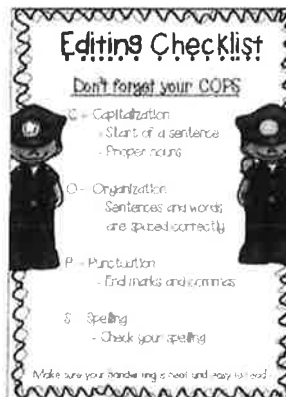 Editing Checklist
Don't forget your COPS
C - Capitalization
- Start of a sentence
- Proper nouns
O - Organization
Sentences and words
are spaced correctly
P - Punctuation
- End marks and commas
S Spelling
- Check your spelling
Make sure your handwriting is neat and easy to read